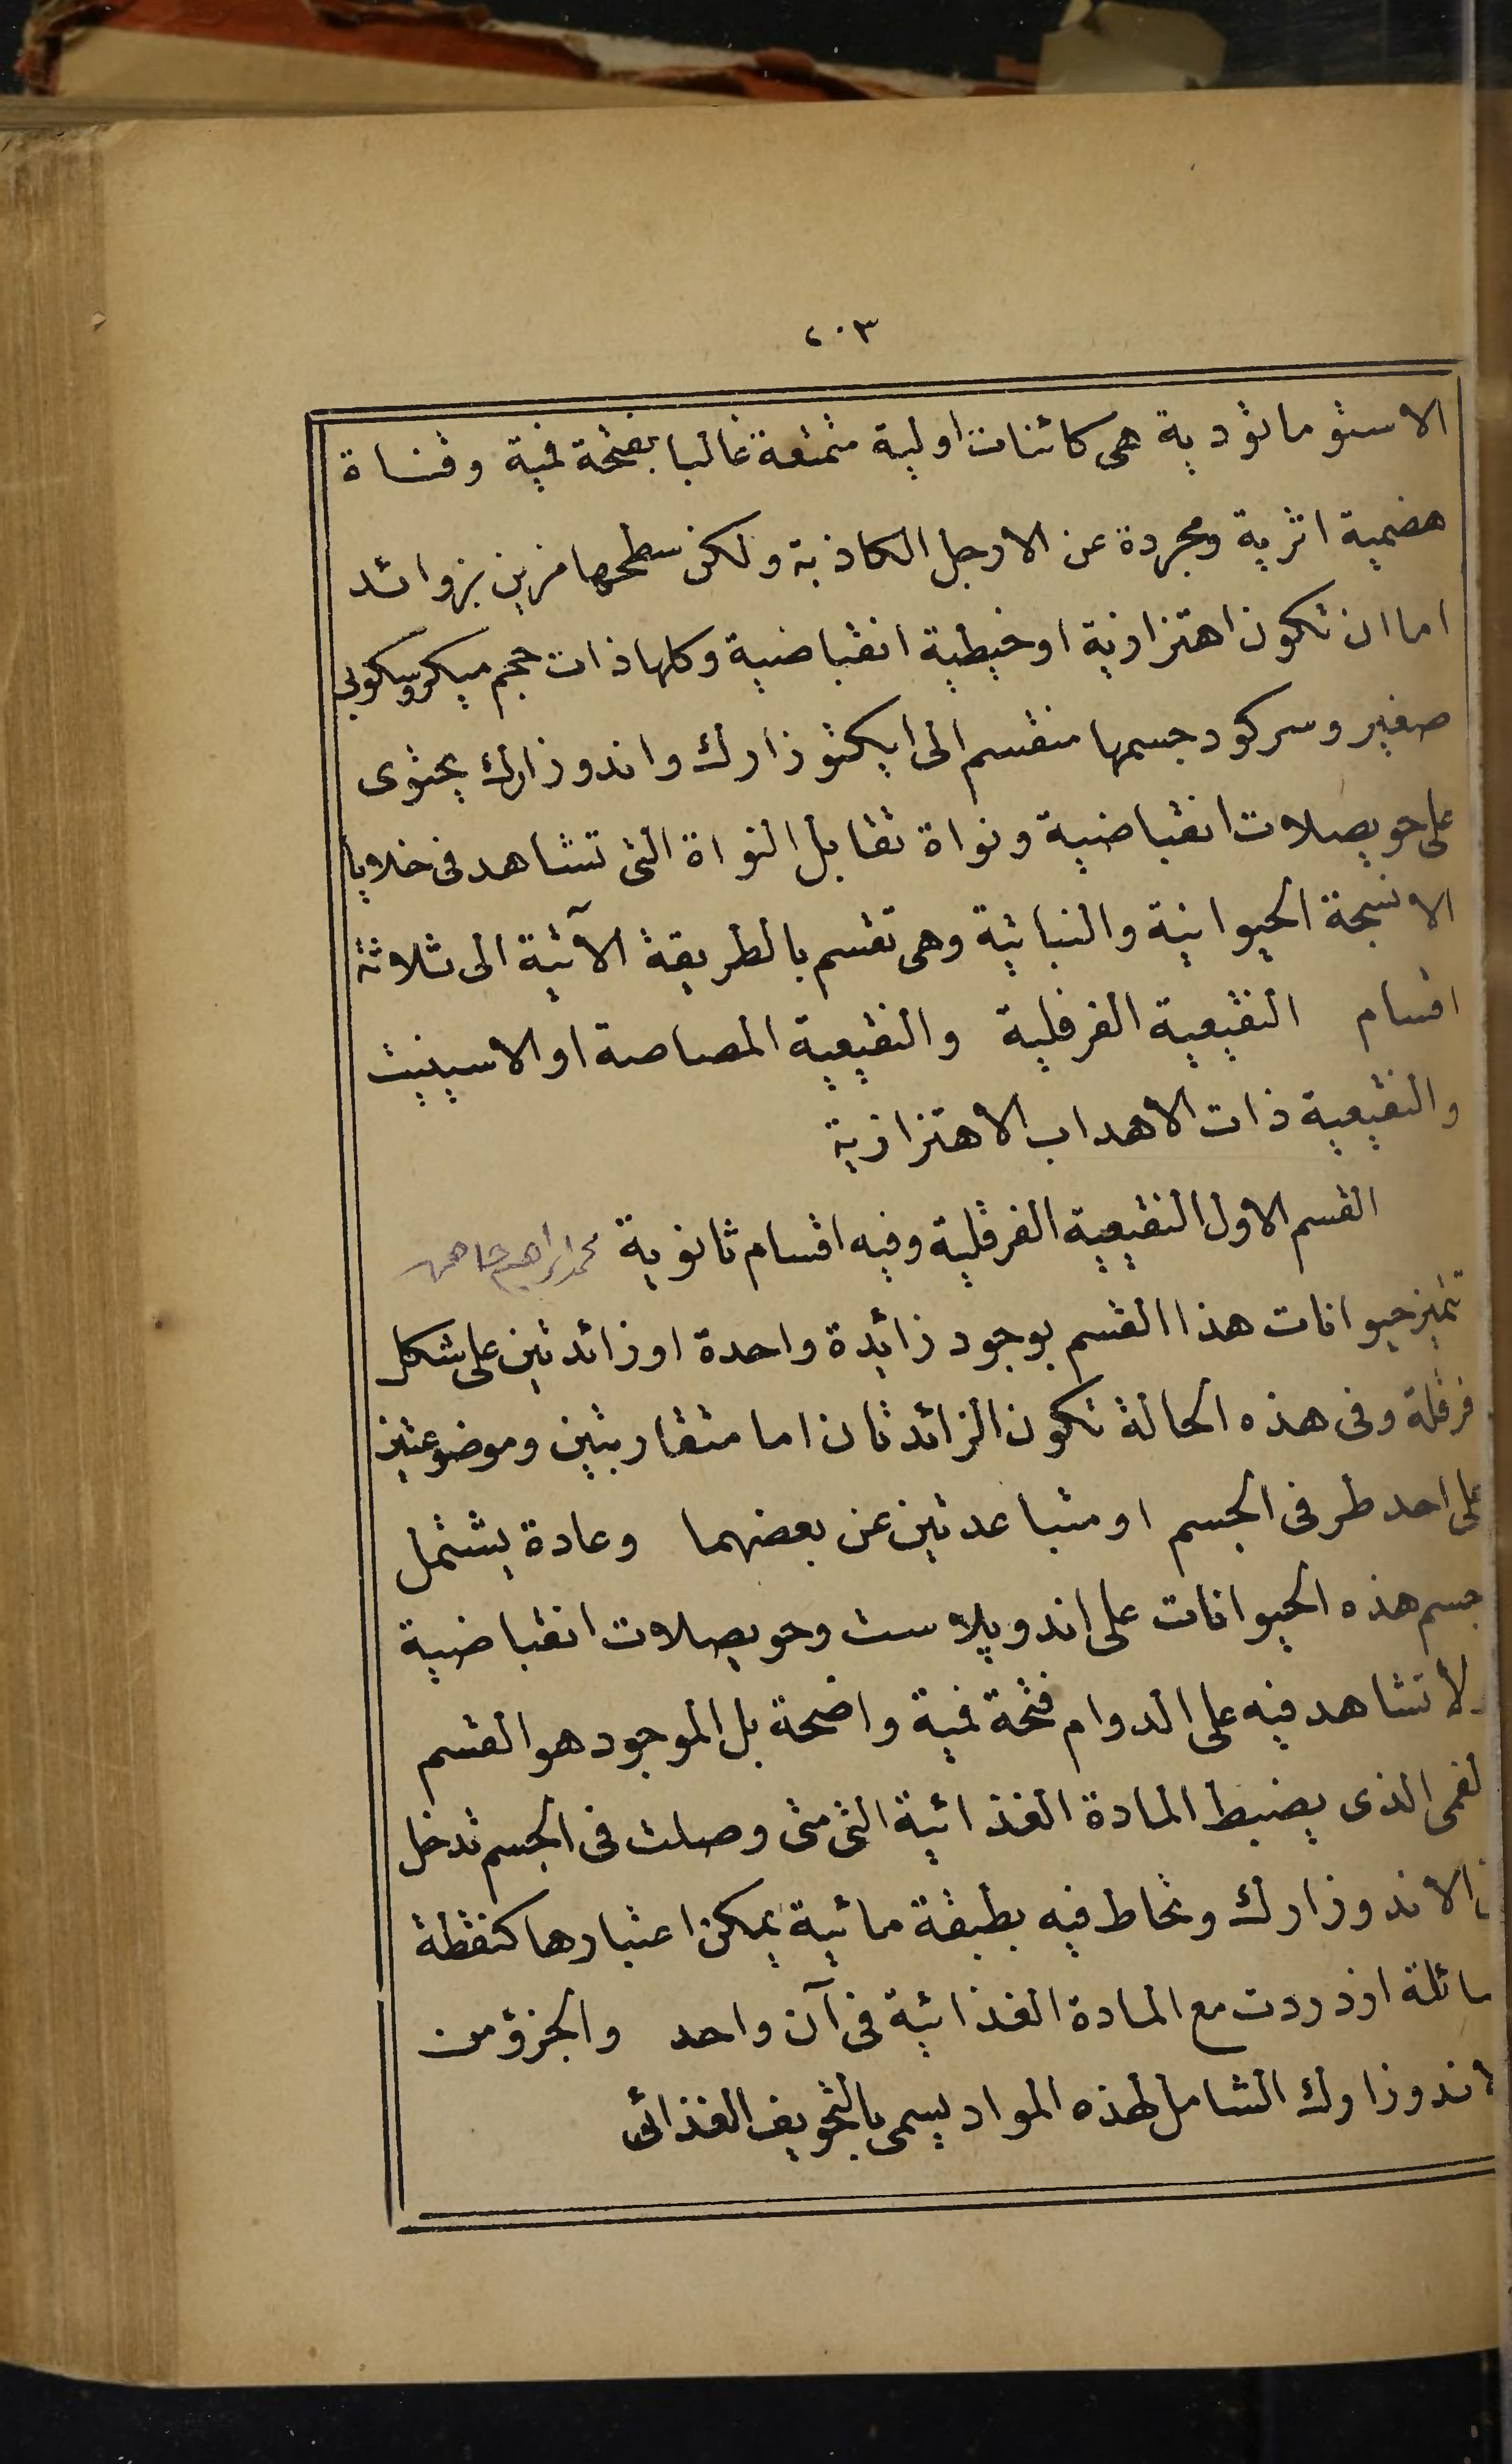 ٢٠٣
الاستوماتودية هى كائنات اولية متمتعة غالبا بفتحة فمية وقناة
هضمية اثرية ومجردة عن الارجل الكاذبة ولكن سطحها مزين بزوائد
اما ان تكون اهتزازية او خيطية انقباضية وكلها ذات حجم ميكروسكوبى
صغير وسركود جسمها منقسم الى ايكتوزارك واندوزارك يحتوى
على حويصلات انقباضية ونواة تقابل النواة التى تشاهد فى خلايا
الانسجة الحيوانية والنباتية وهى تقسم بالطريقة الآتية الى ثلاثة
اقسام النقيعية الفرقلية والنقيعية المصاصة او الاسينيت
والنقيعية ذات الاهداب الاهتزازية
القسم الاول النقيعية الفرقلية وفيه اقسام ثانوية محمد ابراهيم
تتميز حيوانات هذا القسم بوجود زائدة واحدة او زائدتين على شكل
فرقلة وفى هذه الحالة تكون الزائدتان اما متقاربتين وموضوعتين
على احد طرفى الجسم او متباعدتين عن بعضهما وعادة يشتمل
جسم هذه الحيوانات على اندوپلاست وحويصلات انقباضية
ولا تشاهد فيه على الدوام فتحة فمية واضحة بل الموجود هو القسم
لفمى الذى يضبط المادة الغذائية التى متى وصلت فى الجسم تدخل
الاندوزارك وتحاط فيه بطبقة مائية يمكن اعتبارها كنقطة
سائلة ازدردت مع المادة الغذائية فى آن واحد والجزؤ من
لاندوزارك الشامل لهذه المواد يسمى بالتجويف الغذائى